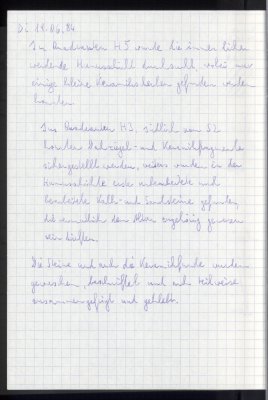 Di 19.06.84
Im Quadranten H5 wurde die immer höher
werdende Humusschicht durchsucht, wobei nur
einige kleine Keramikscherben gefunden werden
konnten.
Im Quadranten H3, südlich von S2
konnten Dachziegel- und Keramikfragmente
sichergestellt werden, weiters wurden in der
Humusschichte erste unbearbeitete und
bearbeitete Kalk- und Sandsteine gefunden,
die vermutlich dem Altar zugehörig gewesen
sein dürften.
Die Steine und auch die Keramikfunde wurden
gewaschen, beschriftet und auch teilweise
zusammengefügt und geklebt.